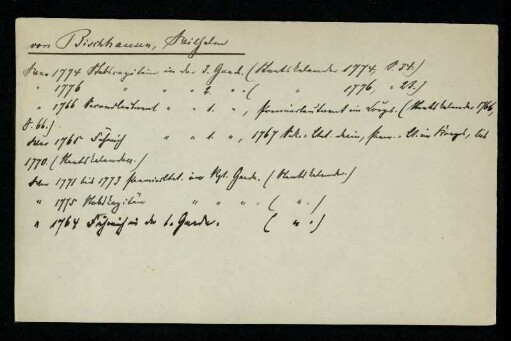 von Bischhausen, Wilhelm
Anno 1774 Stabscapitän in der 3. Garde. (Staats Kalender 1774, S. 34.)
" 1776 " " " 2. " . ( " 1776, " 28.)
" 1766 Secondlieutenant " " 1. " , Premierlieutenant im (Staats Kalender 1766,
S. 66.)
Anno 1765 Fähnrich " " 1. " , 1767 Sek. - Lieut. , Prem. - Lt. im , bis
1770. (Staats Kalender.)
Anno 1771 bis 1773 Premierlieut. im Rgt. Garde. (Staats Kalender.)
" 1775 Stabskapitän " " " . ( " . )
" 1764 Fähnrich in der 1. Garde. ( " . )